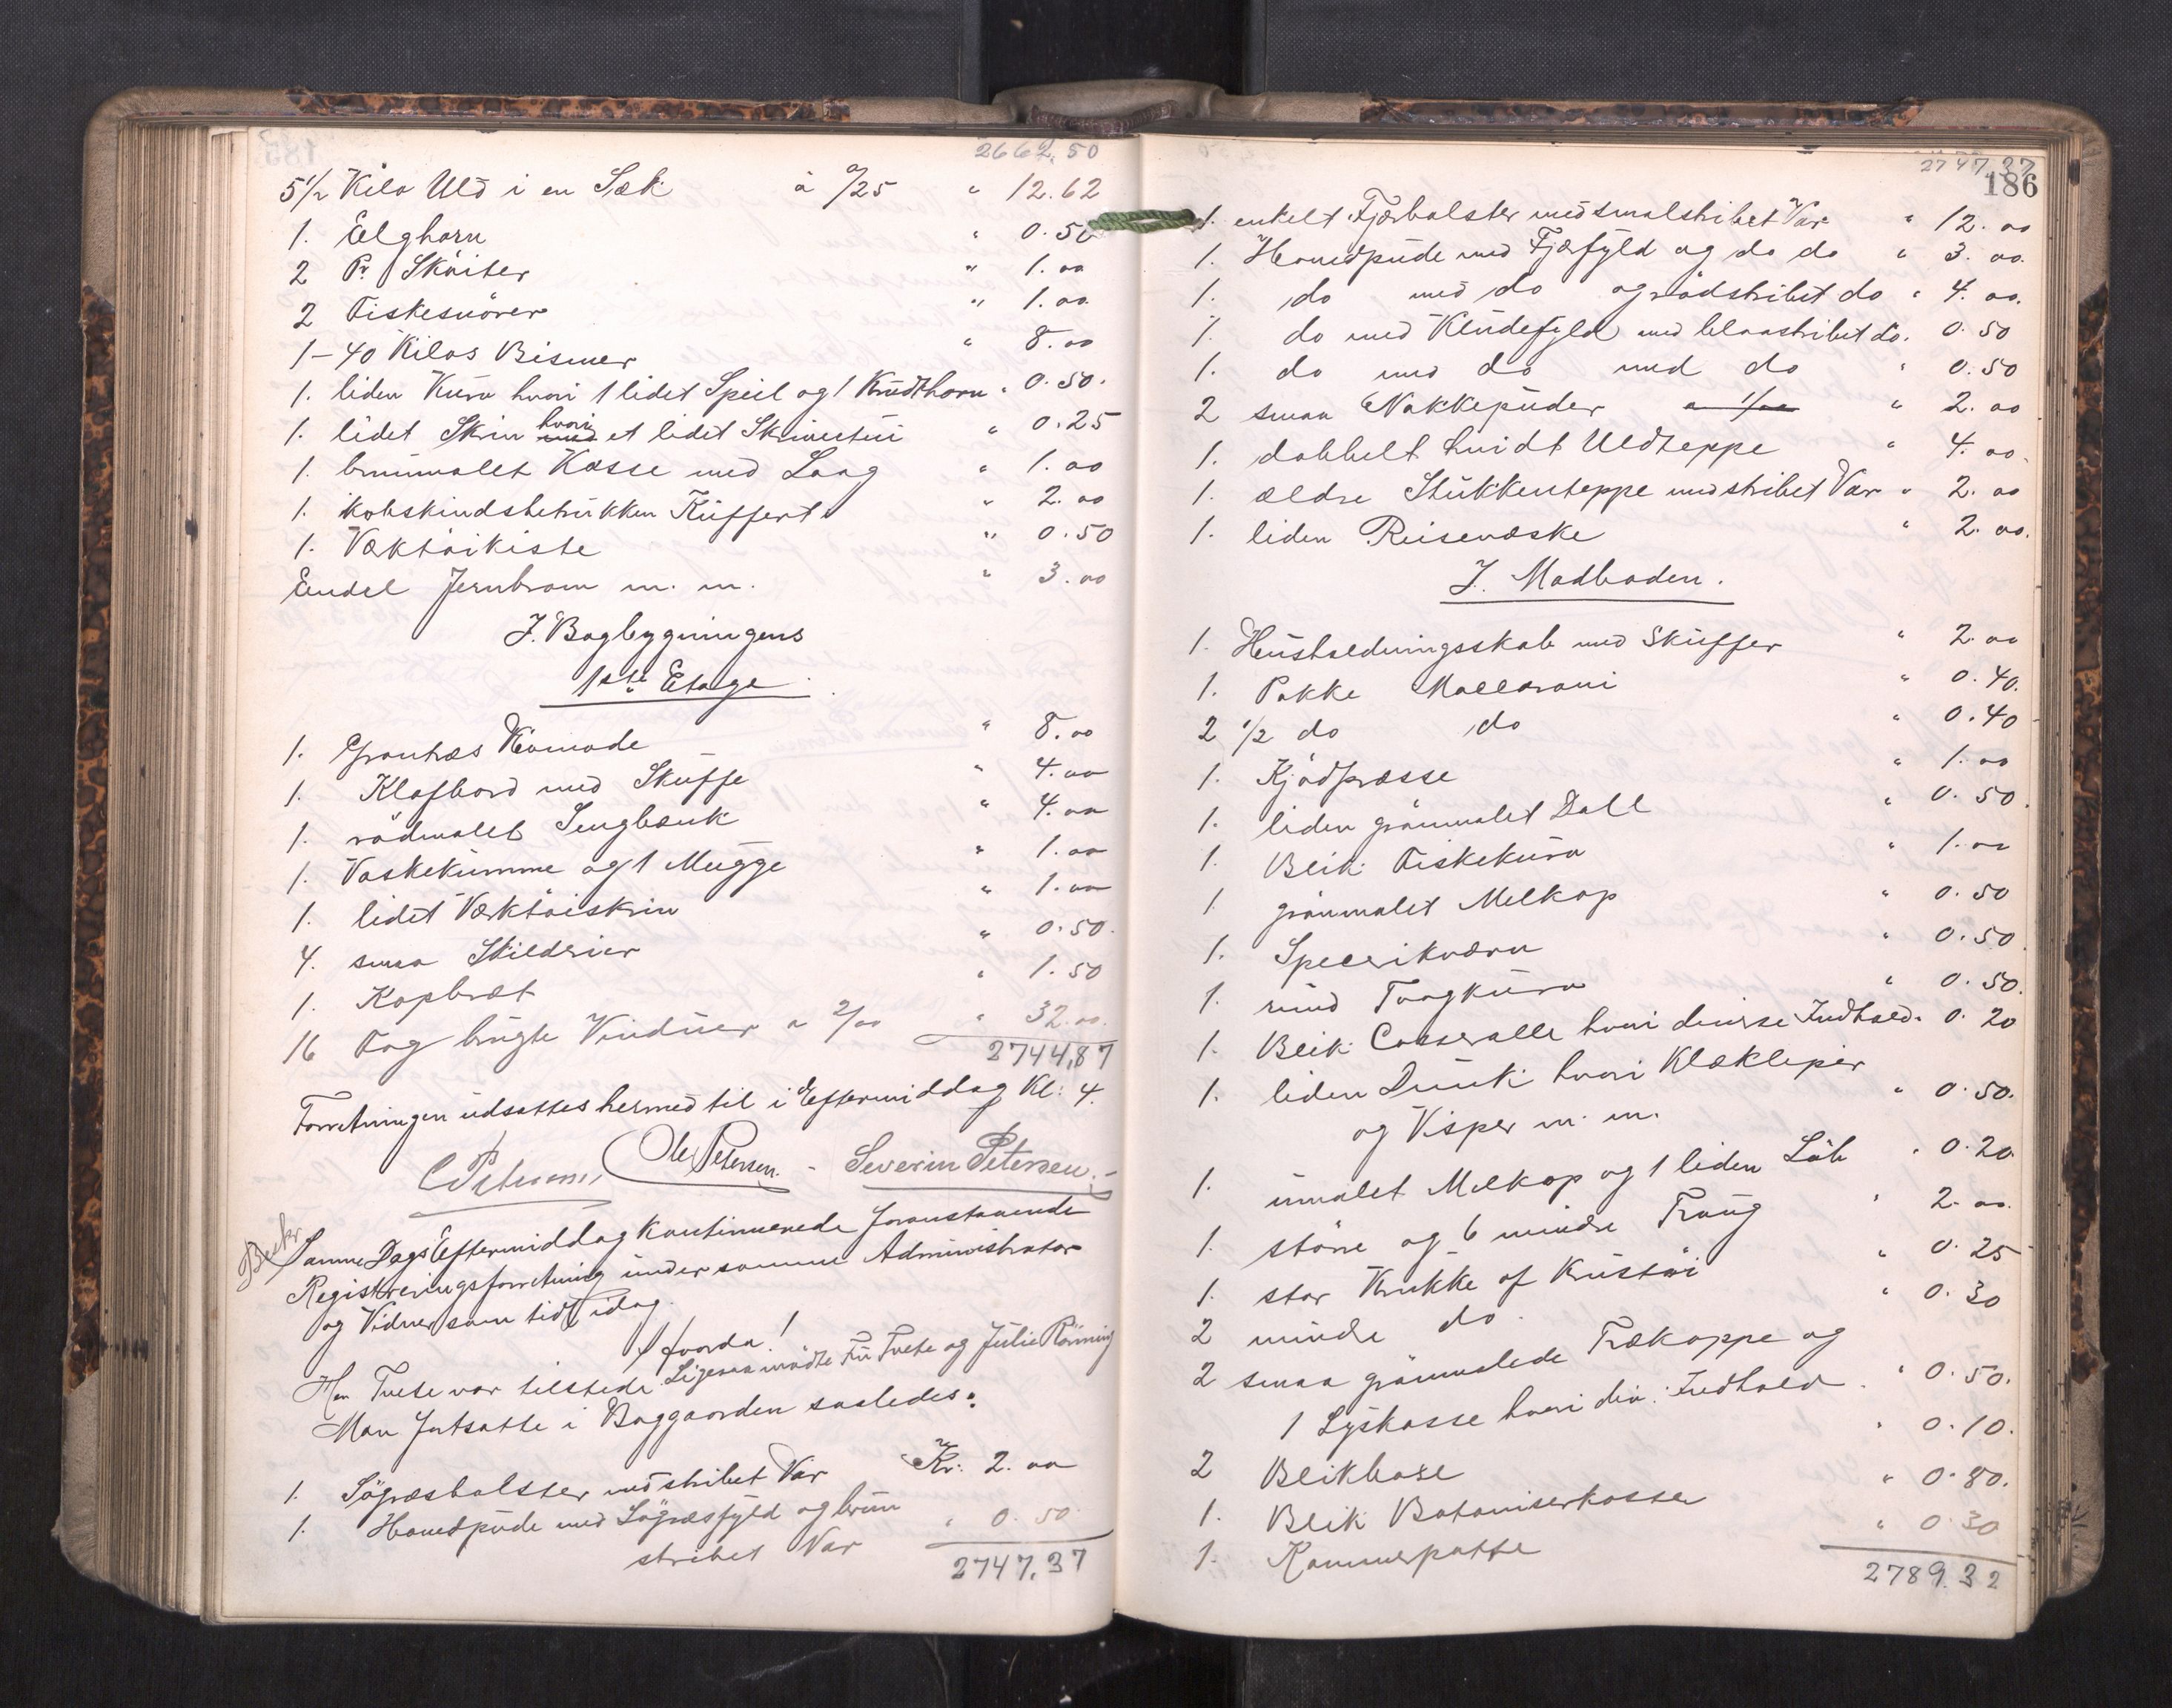 2662,50
5 1/2 Kilo Uld i en Sæk à 2/25 " 12.62
1. Elghorn " 0.50
2 Pr Sköiter " 1.00
2 Fiskesnörer " 1.00
1-40 Kilos Bismer " 8.00
1. liden Kurv hvori 1 lidet Speil og 1 Krudthorn " 0.50.
1. lidet Skrin hvori et lidet Skrivestui " 0.25
1. brunmalet Kasse med Laag " 1.00
1. kobskindsbetrukken Kuffert " 2.00
1. Værktöikiste " 0.50
Endel Jernkram m. m. " 3.00
I. Bagbygningens
1ste Etage
1. Grantræs Komode " 8.00
1. Klafbord med Skuffe " 4.00
1. rödmalet Sengbænk " 4.00
1. Vaskekumme og 1 Mugge " 1.00
1. lidet Værktöiskrin " 1.00
4. smaa Skilderier " 0.50.
1. Kopbræt " 1.50
16 Fag brugte Vinduer a 2/00 " 32.00.
2744,87
Forretningen udsattes hermed til i Eftermiddag Kl: 4.
Ole Petersen. - Severin Petersen. -
Samme Dags Eftermiddag kontinuerede foranstaaende
Registreringsforretning under samme Administrator
og Vidner som tidl idag.
Hr Tvete var tilstede. Ligesaa mödte Fru Tvete og Julie Rönning
Man fortsatte i Baggaarden saaledes:
1. Sögræsbolster med stribet Vár Kr: 2.00
1. Hovedpude med Sögræsfyld og brun
stribet Var " 0.50
2747,37
2747.37
186
1. enkelt Fjærbolster med smalstribet Var " 12.00
1. Hovedpude med Fjæfyld og do do " 3.00.
1. do med do og rödstribet do " 4.00.
1. do med Kludefyld med blaastribet do. 0.50
1. do med do med do " 0.50
2 smaa Nakkepuder a 1/00 " 2.00
1. dobbelt hvidt Uldteppe " 4.00.
1. ældre Stukkenteppe med stribet Var " 2.00
1. liden Reisevæske " 2.00.
I. Madboden.
1. Husholdningsskab med Skuffer " 2.00
1. Pakke Maccaroni " 0.40.
2 1/2 do do " 0.40
1. Kjödpresse " 1.00
1. liden grönmalet Dall " 0.50.
1. Blik Fiskekurv " 1.00
1 grönmalet Melkop " 0.50
1. Specerikværn " 0.50
1 rund Torgkurv " 0.50.
1. Blik Casseralle hvori diverse Indhold. 0.20
1. liden Dunk hvori Klækleper
og Visper m. m. " 0.50.
1. umalet Melkop og 1 liden Löb " 0.20.
1. större og 6 mindre Traug " 2.00.
1. stor Krukke af Krustöi " 0.25
2 mindre do " 0.30
2 smaa grönmalede Trækoppe og
1 Lyskasse hvori div. Indhold " 0.50.
2 Blikbokse " 0.10.
1. Blik Botaniserkasse " 0.80.
1. Kammerpotte " 0.30
2789.32